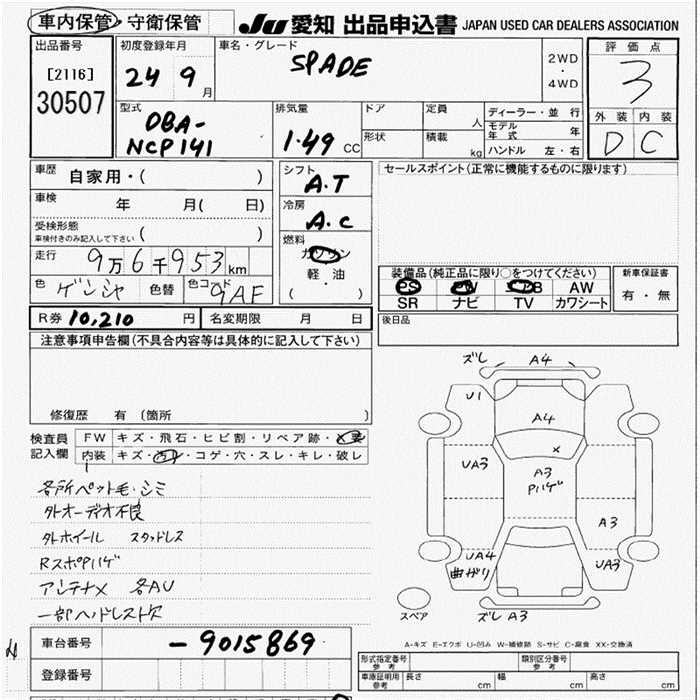 車内保管・守衛保管
JU 愛知 出品申込書 JAPAN USED CAR DEALERS ASSOCIATION
出品番号
[2116]
30507
初度登録年月
24 9月
車名・グレード
SPADE
2WD
・
4WD
評価点
3
外装 内装
D C
型式
DBA-
NCP141
排気量
1.49 CC
ドア
形状
定員 人
積載 kg
ディーラー・並 行
モデル年式 年
ハンドル 左・右
車歴
自家用・( )
車検 年 月( 日)
受検形態
車検付きのみ記入して下さい ( )
走行 9万6千953km
色 ゲンシャ 色替 色コード 9AF
シフト
A.T
冷房
A.C
燃料
ガソリン
軽・油
( )
セールスポイント(正常に機能するものに限ります)
装備品(純正品に限り○をつけてください)
PS PW AW
SR ナビ TV カワシート
新車保証書
有・無
R券 10,210 円 名変期限 月 日
後日品
注意事項申告欄(不具合内容等は具体的に記入して下さい)
修復歴 有 (箇所 )
検査員
記入欄
FW キズ・飛石・ヒビ割・リペア跡・
内装 キズ・汚レ・コゲ・穴・スレ・キレ・破レ
各所ペット毛・シミ
外オーディオ不良
外ホイール スタッドレス
RスポPハゲ
アンテナX 各AU
一部ヘッドレスト欠
ズレ A4
U1
A4
X
UA3
A3
Pハゲ
A3
UA4
曲がり
UA3
スペア
ズレ A3
A-キズ E-エクボ U-凹み W-補修跡 S-サビ C-腐食 XX-交換済
車台番号 -9015869
登録番号
形式指定番号
参考
類別区分番号
参考
車庫証明用
参考
長さ cm 幅 cm 高さ cm